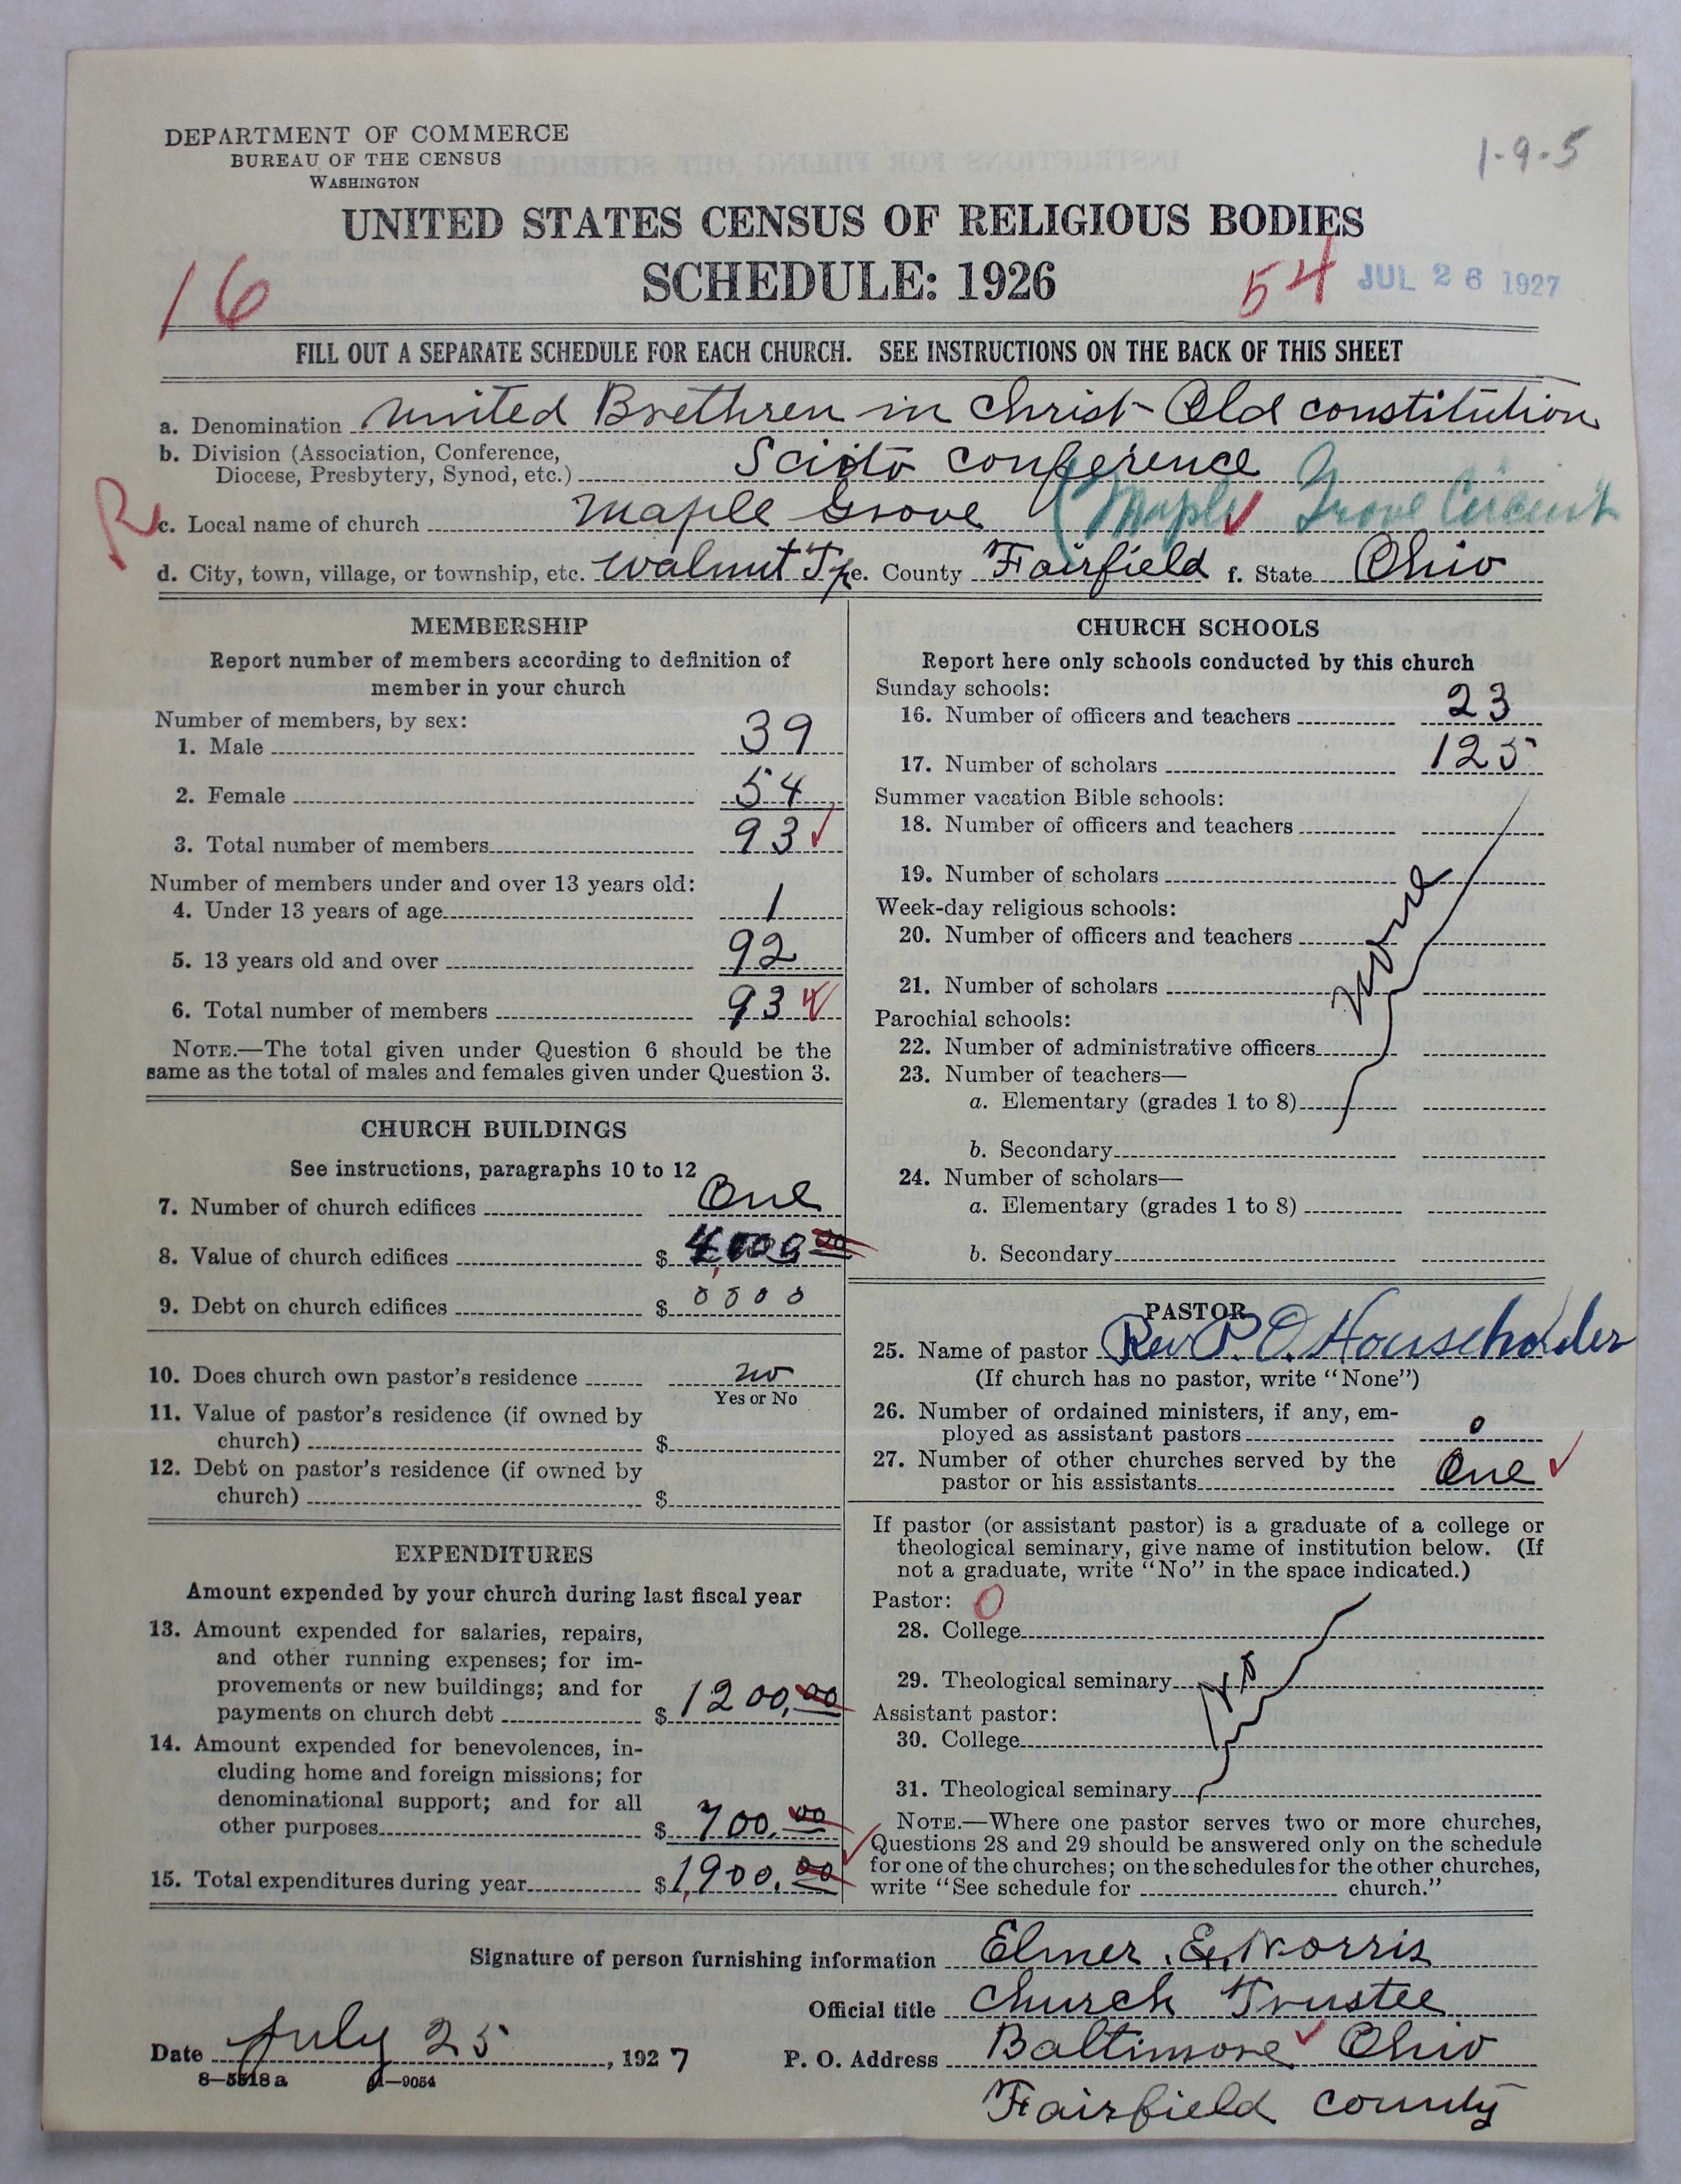 DEPARTMENT OF COMMERCE
BUREAU OF THE CENSUS
WASHINGTON
1-9-5
UNITED STATES CENSUS OF RELIGIOUS BODIES
SCHEDULE: 1926
16
54
JUL 26 1927
FILL OUT A SEPARATE SCHEDULE FOR EACH CHURCH. SEE INSTRUCTIONS ON THE BACK OF THIS SHEET
a. Denomination United Brethren in Christ - Old constitution
b. Division (Association, Conference,
Diocese, Presbytery, Synod, etc.) Scioto conference
R c. Local name of church Maple Grove (Maple Grove Circuit
d. City, town, village, or township, etc. Walnut Tp e. County Fairfield f. State Ohio
MEMBERSHIP
Report number of members according to definition of
member in your church
Number of members, by sex:
1. Male 39
2. Female 54
3. Total number of members 93
Number of members under and over 13 years old:
4. Under 13 years of age 1
5. 13 years old and over 92
6. Total number of members 93
NOTE.—The total given under Question 6 should be the
same as the total of males and females given under Question 3.
CHURCH BUILDINGS
See instructions, paragraphs 10 to 12
7. Number of church edifices One
8. Value of church edifices $ 4000 00
9. Debt on church edifices $ 0000
10. Does church own pastor's residence no
Yes or No
11. Value of pastor's residence (if owned by
church) $
12. Debt on pastor's residence (if owned by
church) $
EXPENDITURES
Amount expended by your church during last fiscal year
13. Amount expended for salaries, repairs,
and other running expenses; for im-
provements or new buildings; and for
payments on church debt $ 1200.00
14. Amount expended for benevolences, in-
cluding home and foreign missions; for
denominational support; and for all
other purposes $ 700.00
15. Total expenditures during year $ 1,900.00
CHURCH SCHOOLS
Report here only schools conducted by this church
Sunday schools:
16. Number of officers and teachers 23
17. Number of scholars 125
Summer vacation Bible schools:
18. Number of officers and teachers
19. Number of scholars
Week-day religious schools:
20. Number of officers and teachers
none
21. Number of scholars
Parochial schools:
22. Number of administrative officers
23. Number of teachers—
a. Elementary (grades 1 to 8)
b. Secondary
24. Number of scholars—
a. Elementary (grades 1 to 8)
b. Secondary
PASTOR
25. Name of pastor Rev P. O. Householder
(If church has no pastor, write "None")
26. Number of ordained ministers, if any, em-
ployed as assistant pastors 0
27. Number of other churches served by the
pastor or his assistants One
If pastor (or assistant pastor) is a graduate of a college or
theological seminary, give name of institution below. (If
not a graduate, write "No" in the space indicated.)
Pastor: 0
28. College
29. Theological seminary No
Assistant pastor:
30. College
31. Theological seminary
NOTE.—Where one pastor serves two or more churches,
Questions 28 and 29 should be answered only on the schedule
for one of the churches; on the schedules for the other churches,
write "See schedule for church."
Signature of person furnishing information Elmer E. Norris
Official title Church Trustee
Date July 25, 1927
P. O. Address Baltimore Ohio
8—5518a 11—9054
Fairfield county